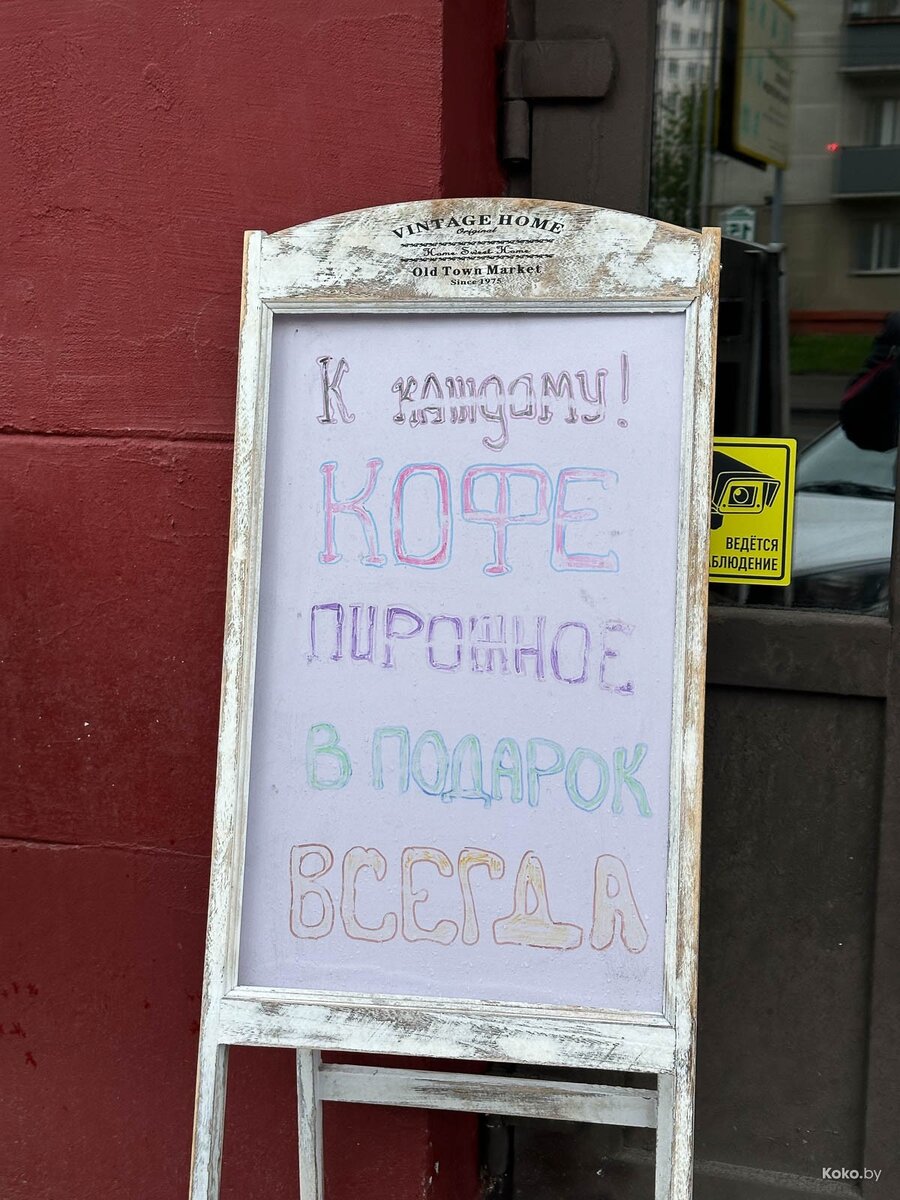 VINTAGE HOME
Original
Home Sweet Home
Old Town Market
Since 1975
К каждому!
КОФЕ
ПИРОЖНОЕ
В ПОДАРОК
ВСЕГДА
ВЕДЁТСЯ
БЛЮДЕНИЕ
Koko.by